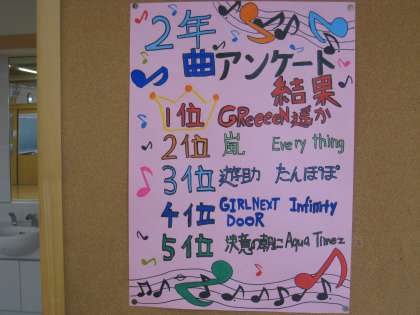 2年
曲アンケート
結果
1位 GReeeeN遥か
2位 嵐 Every thing
3位 遊助 たんぽぽ
4位 GIRLNEXT Infinity
DOOR
5位 決意の朝に Aqua Timez